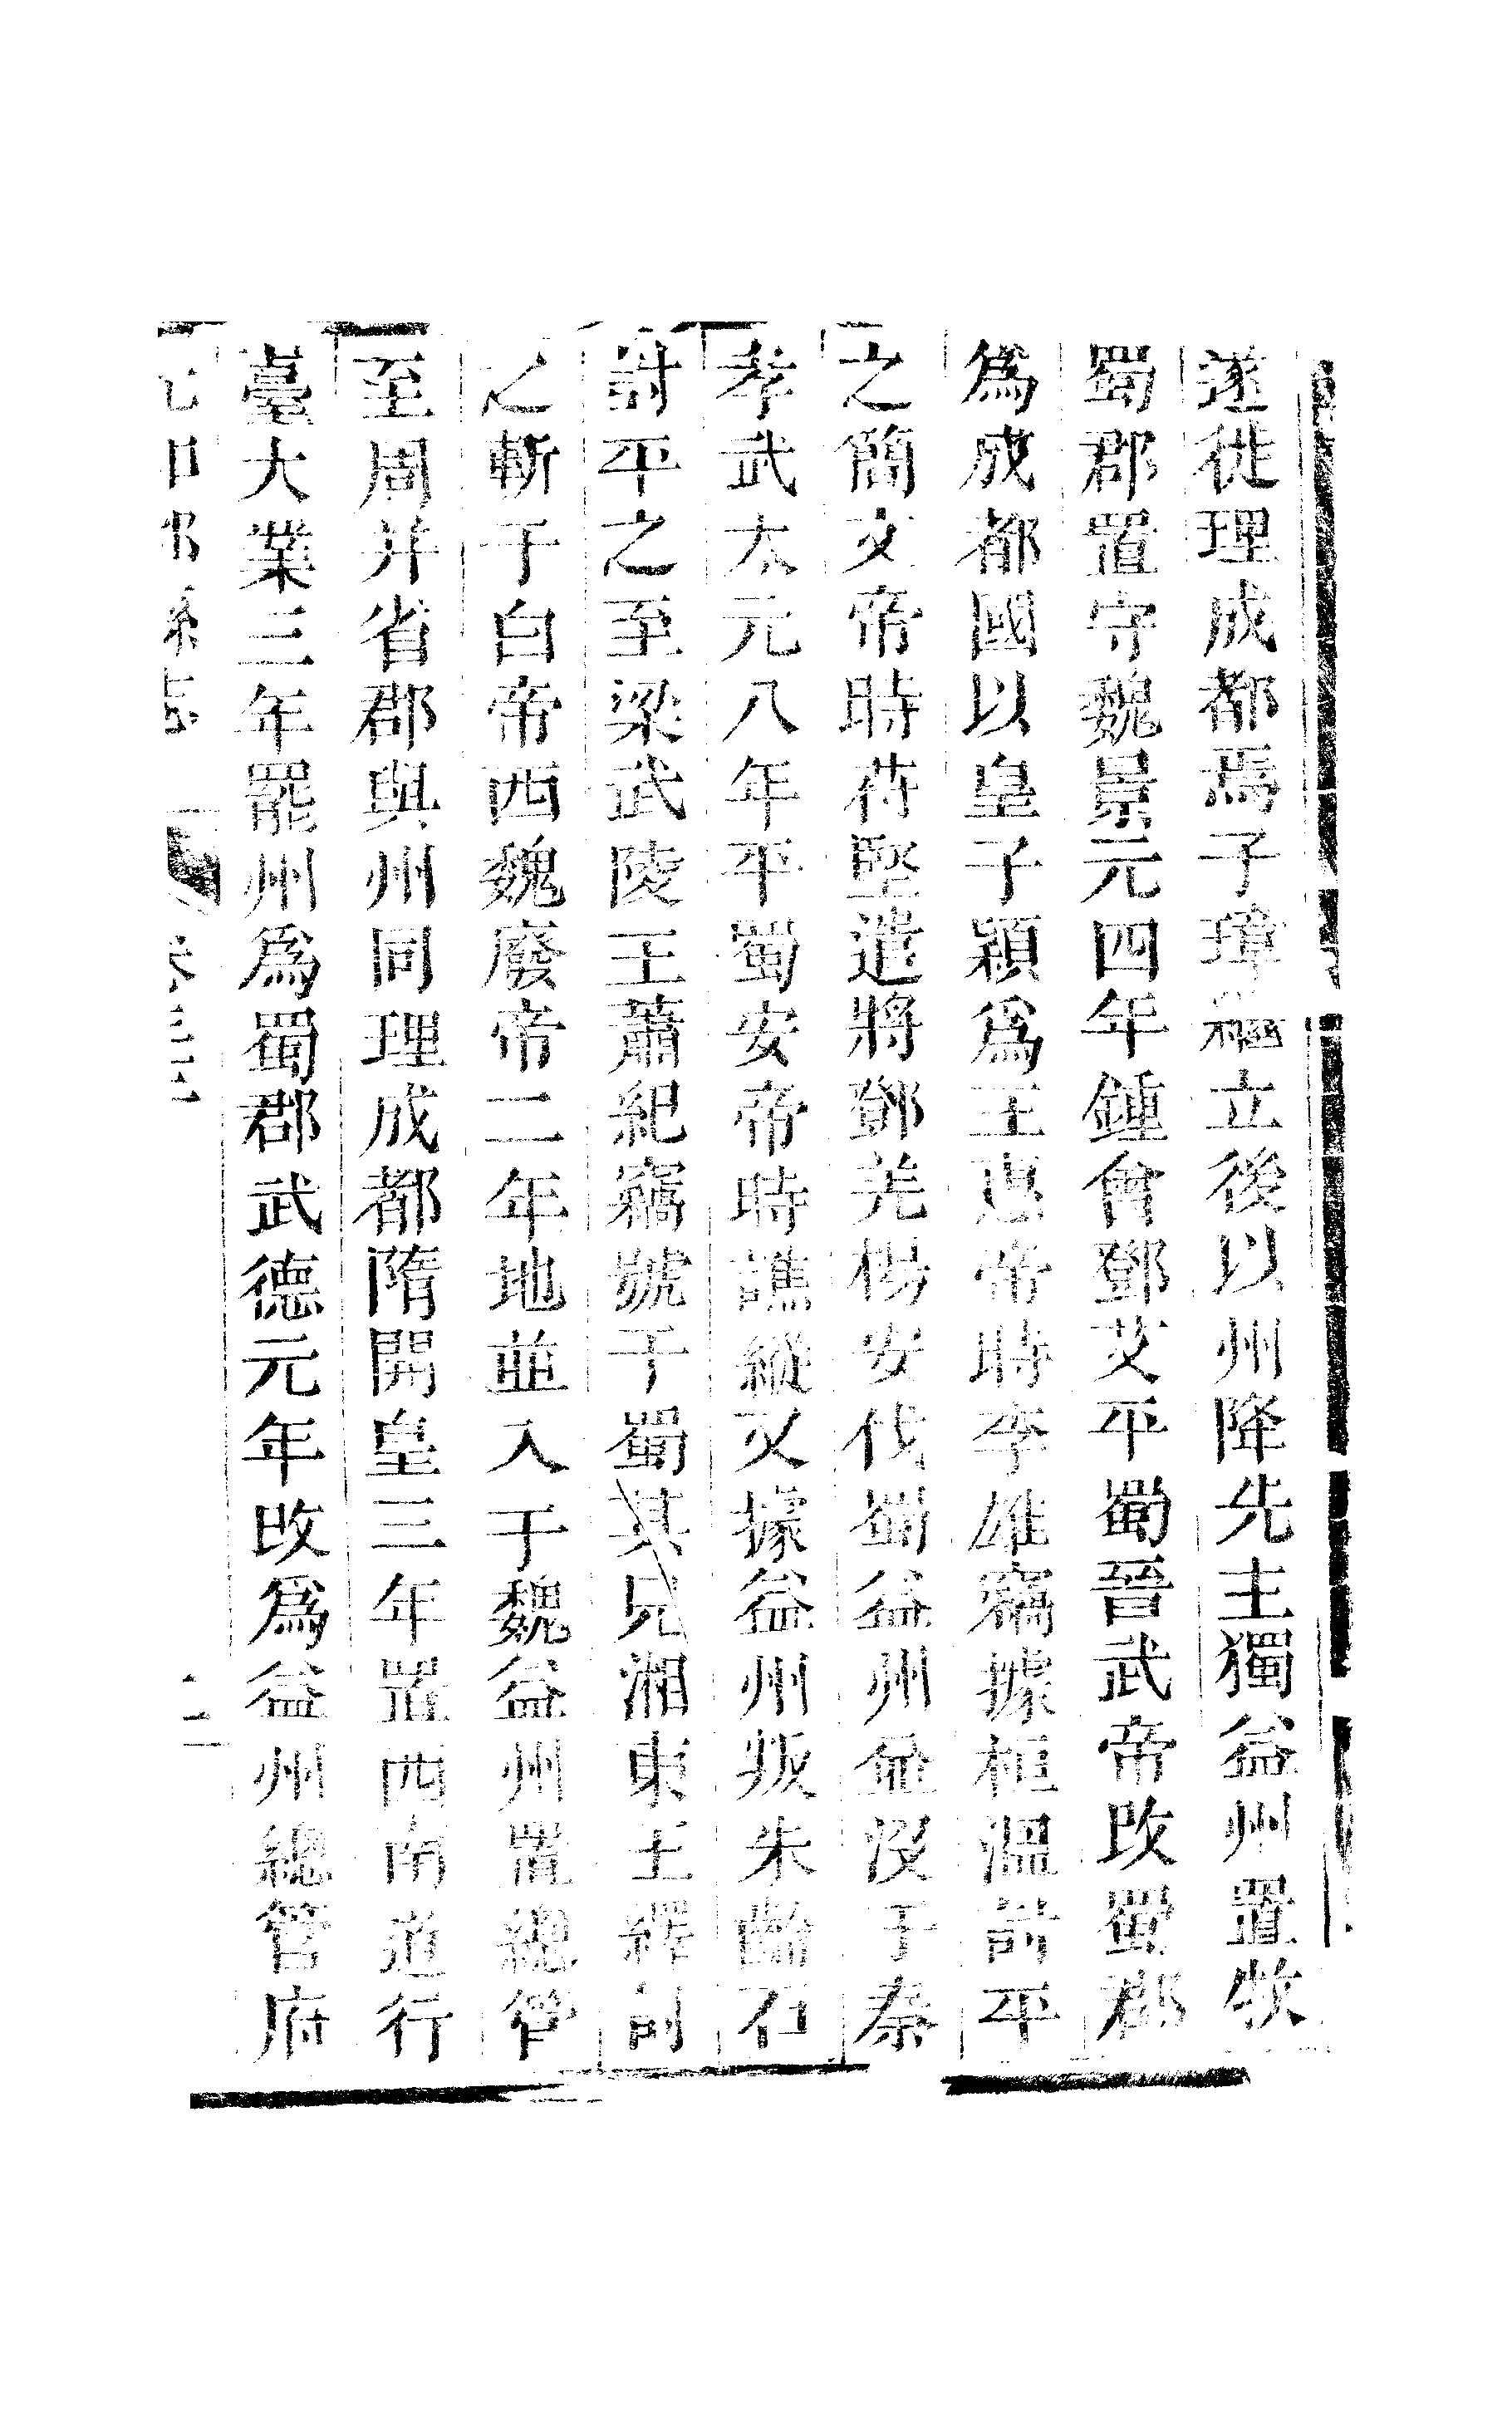 遂徙理成都焉子璋繼立後以州降先主獨益州置牧
蜀郡置守魏景元四年鍾會鄧艾平蜀晉武帝改蜀郡
爲成都國以皇子穎爲王惠帝時李雄竊據桓溫討平
之簡文帝時苻堅遣將鄧羌楊安伐蜀益州竝沒于秦
孝武太元八年平蜀安帝時譙縱又據益州叛朱齡石
討平之至梁武陵王蕭紀竊號于蜀其兄湘東王繹討
之斬于白帝西魏廢帝二年地並入于魏益州置總管
至周并省郡與州同理成都隋開皇三年置西南道行
臺大業三年罷州爲蜀郡武德元年改爲益州總管府